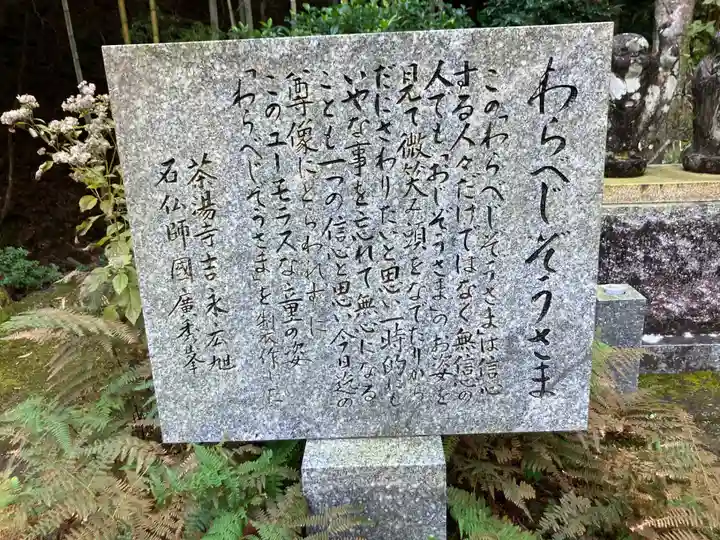 わらべじぞうさま
この「わらべじぞうさまは信心
する人々だけではなく無信心の
人でも「おじぞうさま」のお姿を
見て微笑み頭をなでたりから
だにさわりたいと思い一時的にも
いやな事を忘れて無心になる
ことも一つの信心と思い今日迄の
尊像にとらわれずに
このユーモラスな童の姿
「わらべじぞうさま」を制作した
茶湯寺吉永
石仏師國廣秀峯